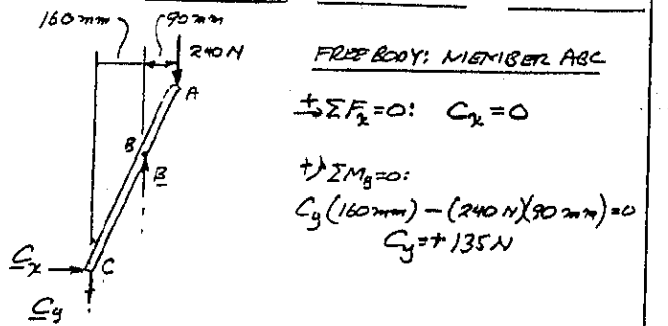 160mm 90mm
240 N
A
B
B
C
Cx
Cy
FREE BODY: MEMBER ABC
+→ΣFx=0: Cx=0
+)ΣMB=0:
Cy(160mm)-(240 N)(90mm)=0
Cy=+135N